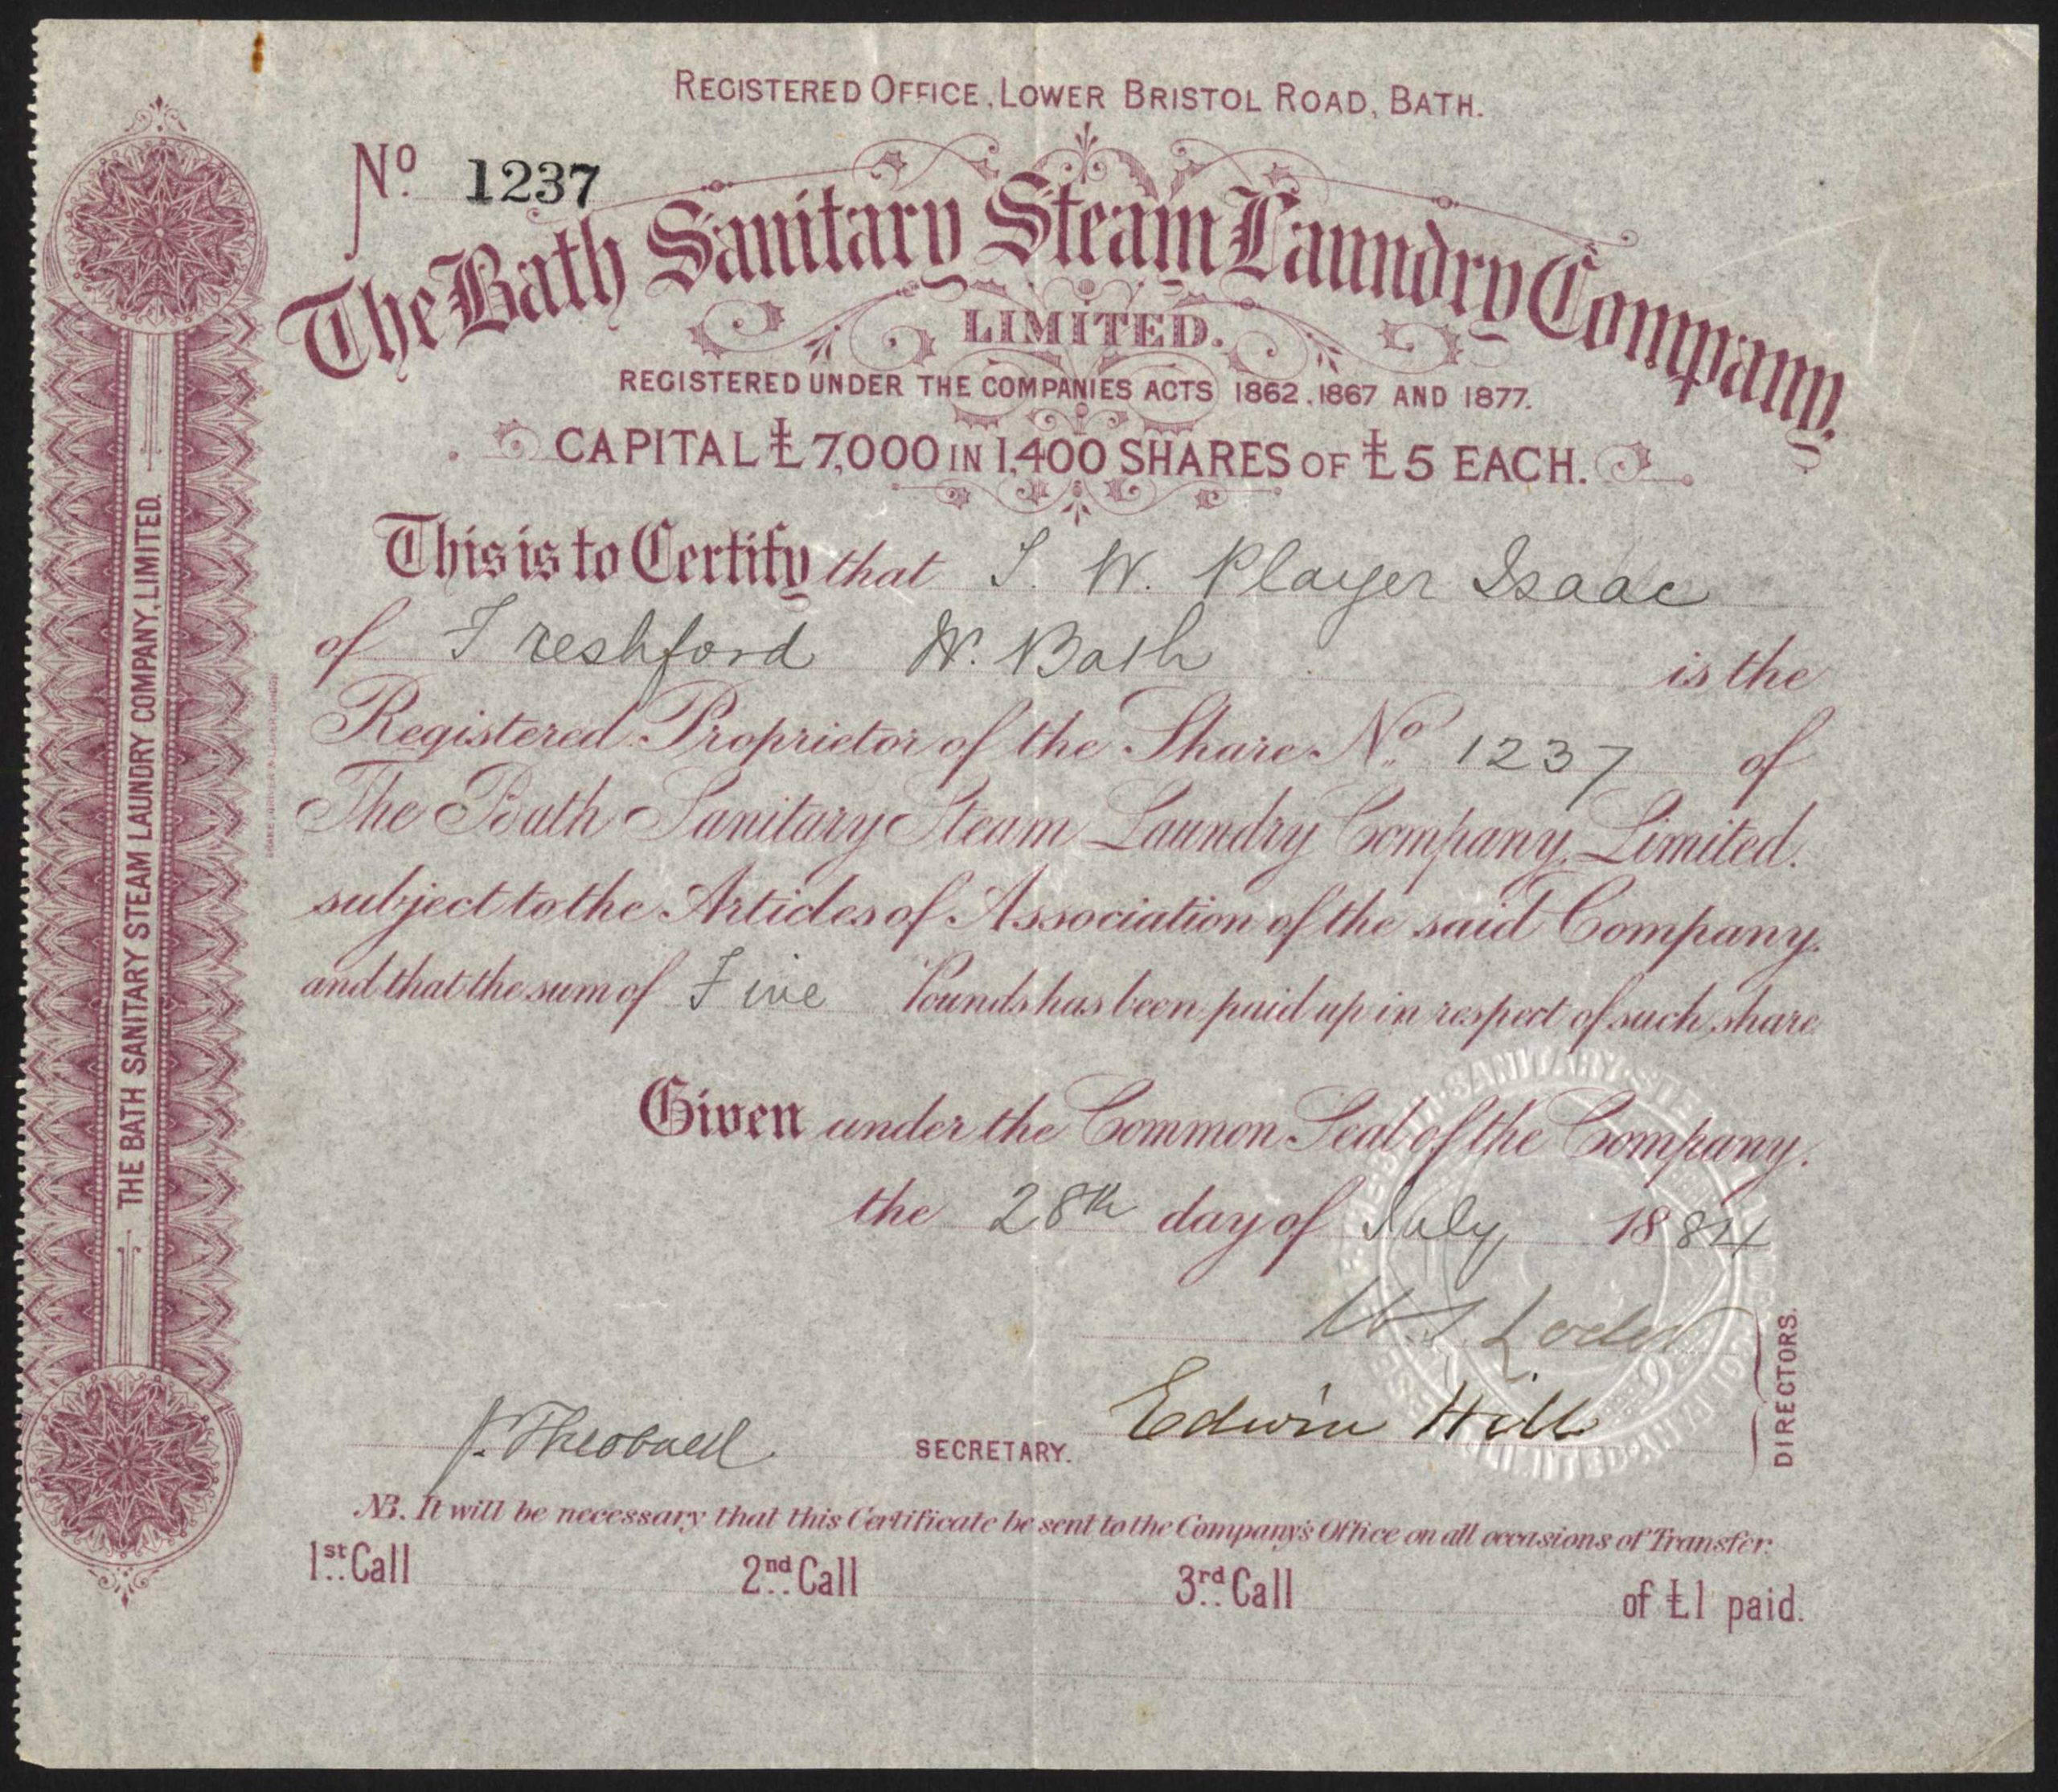 REGISTERED OFFICE, LOWER BRISTOL ROAD, BATH.
No. 1237
The Bath Sanitary Steam Laundry Company,
LIMITED.
REGISTERED UNDER THE COMPANIES ACTS 1862. 1867 AND 1877.
CAPITAL £7,000 IN 1,400 SHARES OF £5 EACH.
This is to Certify that J. W. Player Isaac
of Freshford Nr. Bath is the
Registered Proprietor of the Share No. 1237 of
The Bath Sanitary Steam Laundry Company, Limited.
subject to the Articles of Association of the said Company.
and that the sum of Five Pounds has been paid up in respect of such share
Given under the Common Seal of the Company.
the 28th day of July 1884
Loder
Edwin Hill
DIRECTORS.
J. Theobald SECRETARY.
NB. It will be necessary that this Certificate be sent to the Company's Office on all occasions of Transfer.
1st Call 2nd Call 3rd Call of £1 paid.
THE BATH SANITARY STEAM LAUNDRY COMPANY, LIMITED.